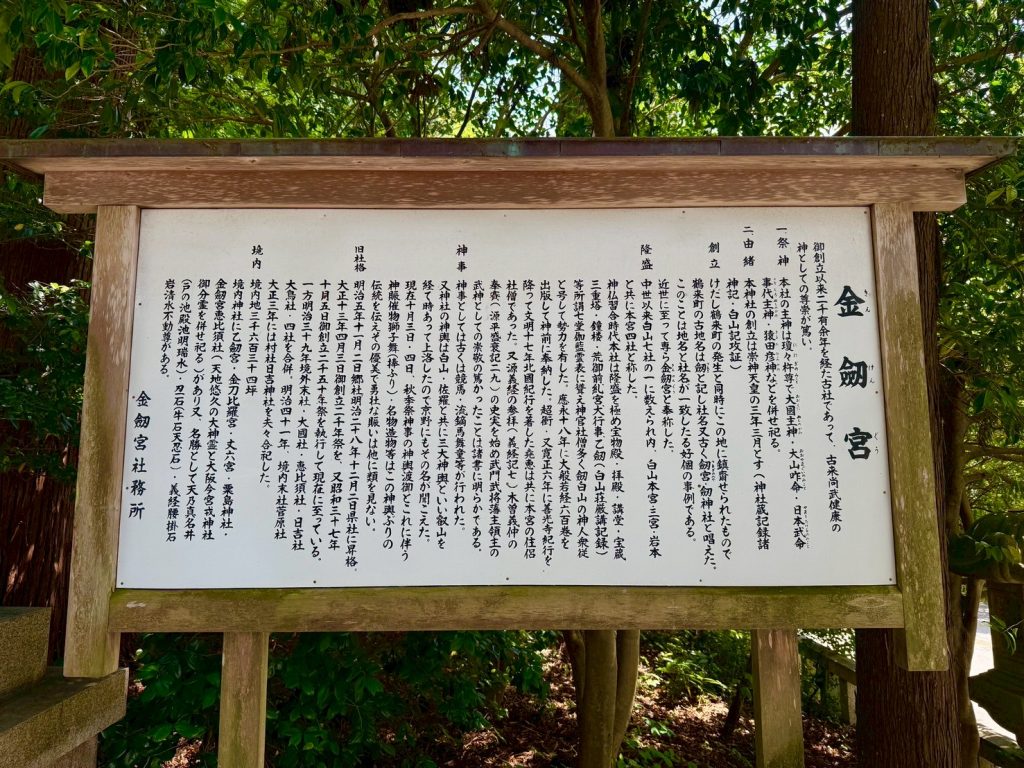 金劔宮
きんけんぐう
御創立以来二千有余年を経た古社であって、古来尚武健康の
神としての尊崇が篤い。
一、祭神 本社の主神は瓊々杵尊で大國主神・大山咋命・日本武命
事代主神・猿田彦神などを併せ祀る。
二、由緒 本神社の創立は崇神天皇の三年三月とす(神社蔵記録諸
神記・白山記攷証)
創立 けだし鶴来町の発生と同時にこの地に鎮齋せられたもので
鶴来町の古地名は劔と記し社名又古く劔宮、劔神社と唱えた。
このことは地名と社名が一致したる好個の事例である。
近世に至って専ら金劔宮と奉称した。
隆盛 中世以来白山七社の一に数えられ内、白山本宮・三宮・岩本
と共に本宮四社と称した。
神仏混淆時代本社は隆盛を極め宝物殿、拝殿・講堂・宝蔵
三重塔・鐘楼・荒御前糺宮大行事乙劔(白山荘厳講記録)
等所謂七堂伽藍雲表に聳え神官社僧多く劔白山の神人衆徒
と号して勢力を有した。應永十八年に大般若経六百巻を
出版して神前に奉納した。超衝・又寛正六年に善光寺紀行を
降って文明十七年北國紀行を著した尭恵は共に本宮の住侶
社僧であった。又源義経の参拝(義経記七)木曽義仲の
奉賽(源平盛衰記二九)の史実を始め武門武将藩主領主の
武神としての崇敬の篤かったことは諸書に明らかである。
神事 神事としては古くは競馬・流鏑馬舞童等が行われた。
又神社の神輿は白山、佐羅と共に三大神輿といい叡山を
経て時あって上洛したので京野にもその名が聞こえた。
現在十月三日・四日、秋季祭神事の神輿渡御とこれに伴う
神賑催物獅子舞(棒ふり)・名物造物等はこの神輿ぶりの
伝統を伝えその優美で勇壮な賑いは他に類を見ない。
旧社格 明治五年十一月二日郷社明治二十八年十二月二日県社に昇格。
大正十三年四月三日御創立二千年祭を 又昭和三十七年
十月五日御創立二千五十年祭を執行して現在に至っている。
一方明治三十九年境外末社・大國社・恵比須社・日吉社
大鳥社・四社を合併、明治四十一年、境内末社菅原社
大正三年には村社日吉神社を夫々合祀した。
境内 境内地三千六百三十四坪
境内神社に乙劔宮・金刀比羅宮・丈六宮 粟島神社・
金劔宮恵比須社(天地悠久の大神霊と大阪今宮戎神社
御分霊を併せ祀る)があり又、名勝として天の真名井
(戸の池殿池明瑞水)刃石(牛石天忍石)・義経腰掛石
岩清水不動尊がある。
金劔宮社務所